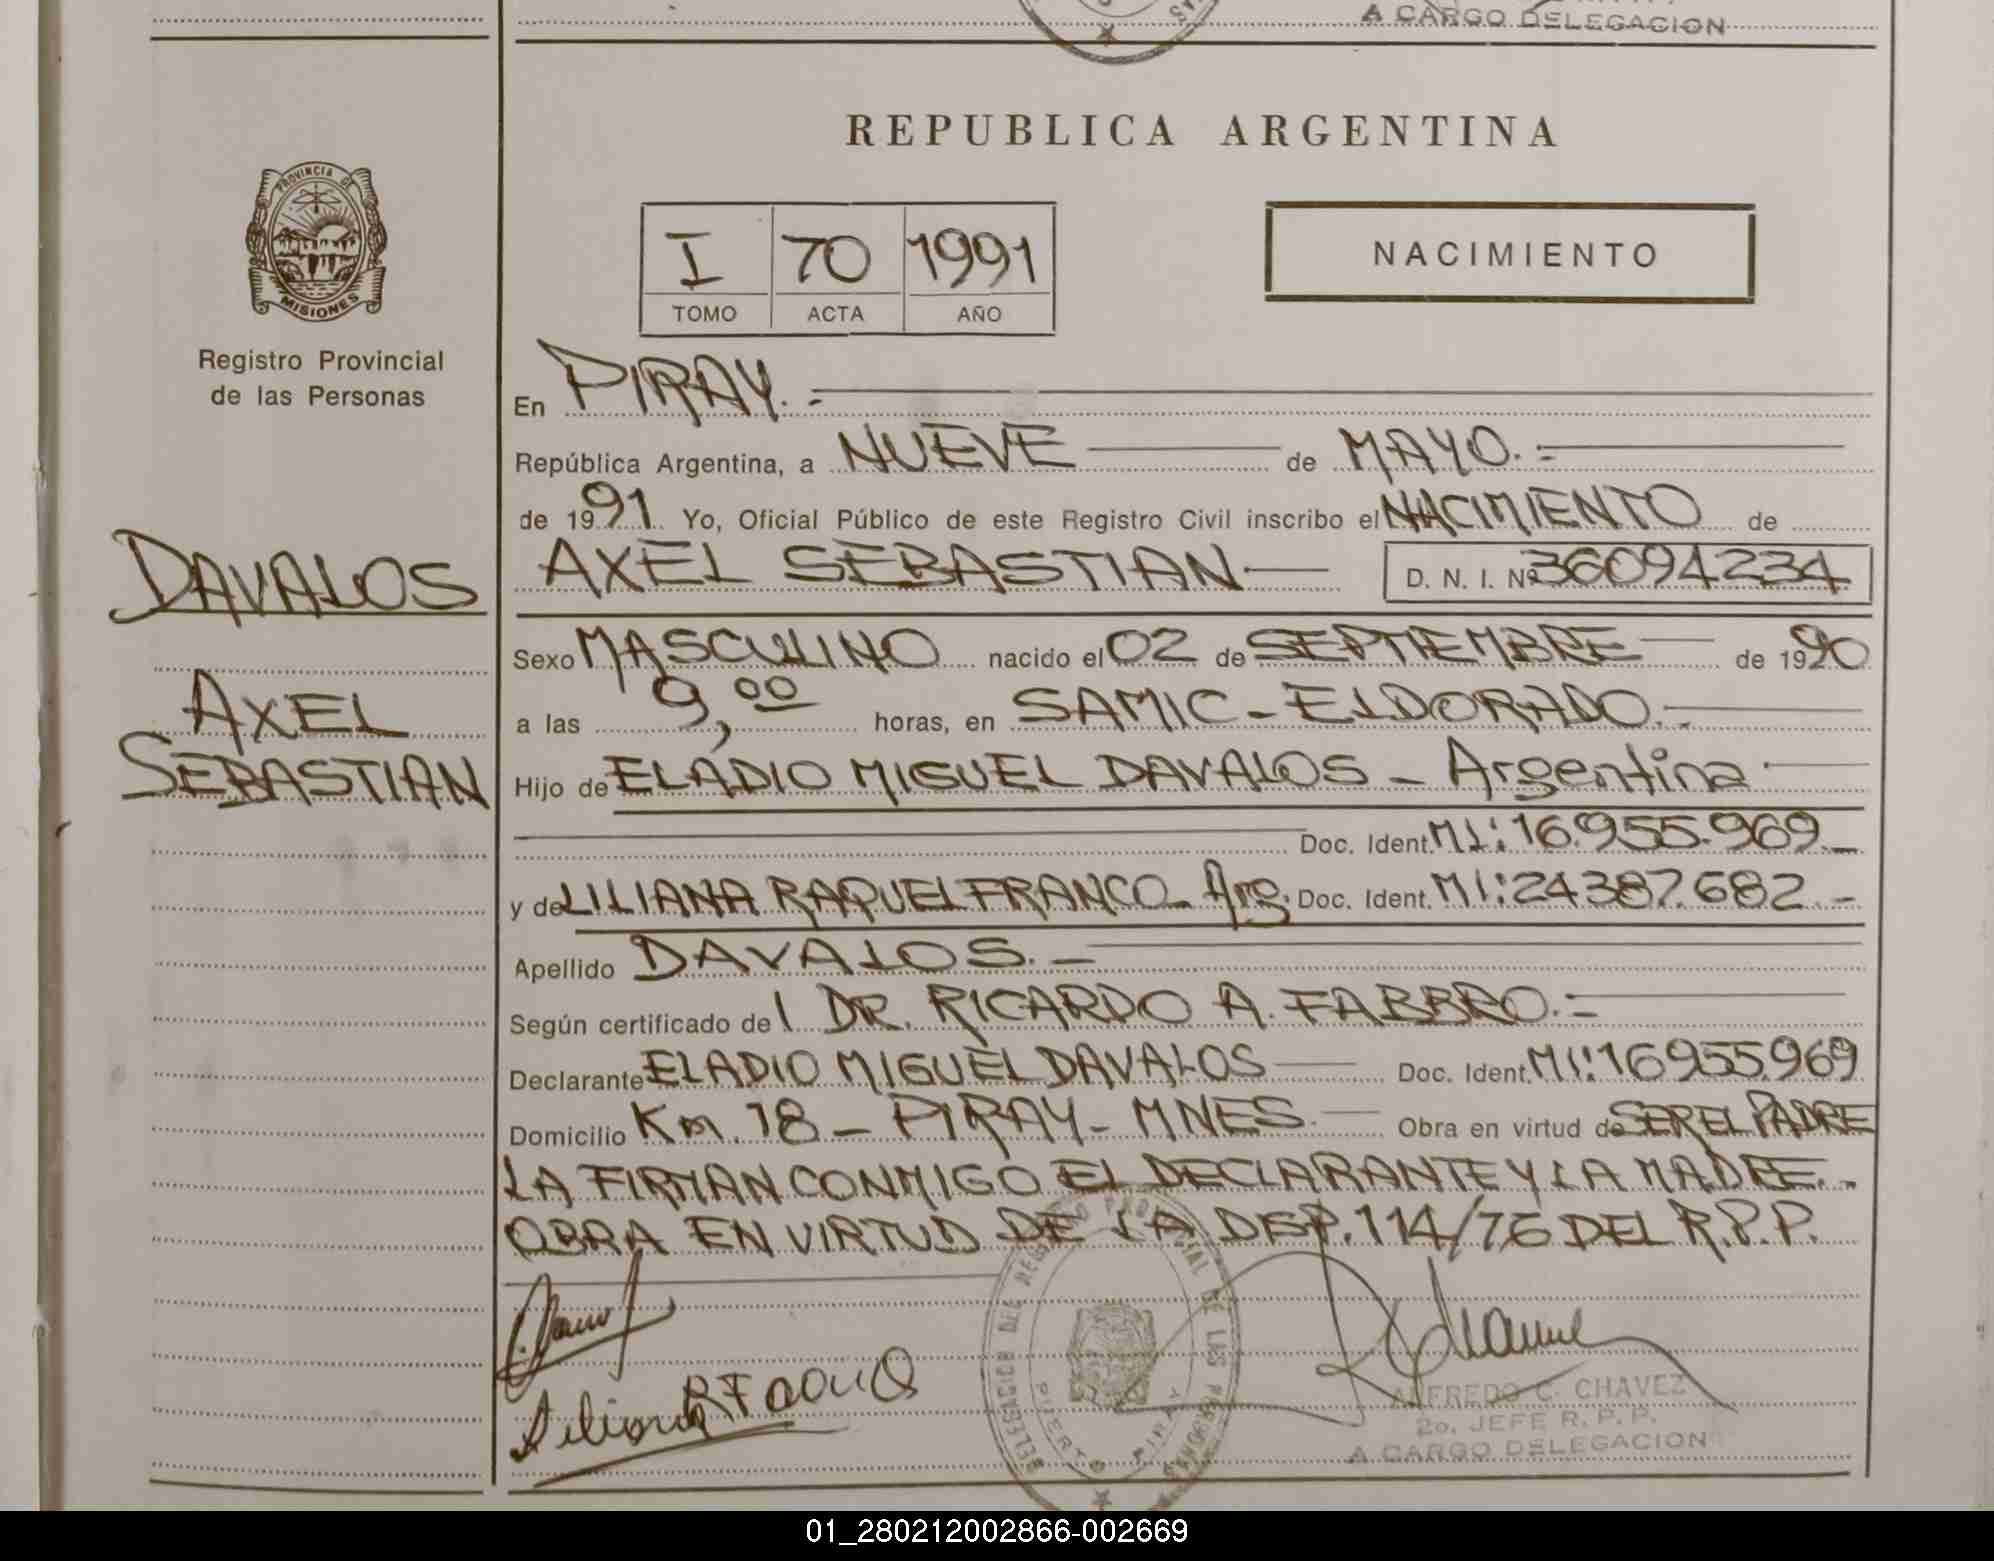 A CARGO DELEGACION
REPUBLICA ARGENTINA
PROVINCIA DE
MISIONES
Registro Provincial
de las Personas
I 70 1991
TOMO ACTA AÑO
NACIMIENTO
DAVALOS
AXEL
SEBASTIAN
En PIRAY.=
República Argentina, a NUEVE de MAYO.=
de 1991 Yo, Oficial Público de este Registro Civil inscribo el NACIMIENTO de
AXEL SEBASTIAN D. N. I. Nº 36094234
Sexo MASCULINO nacido el 02 de SEPTIEMBRE de 1990
a las 9,00 horas, en SAMIC - ELDORADO.-
Hijo de ELADIO MIGUEL DAVALOS - Argentina
Doc. Ident. MI: 16.955.969.-
y de LILIANA RAQUEL FRANCO - Arg. Doc. Ident. MI: 24387.682.-
Apellido DAVALOS.-
Según certificado del DR. RICARDO A. FABBRO.=
Declarante ELADIO MIGUEL DAVALOS Doc. Ident. MI: 16955.969
Domicilio Km. 18 - PIRAY - MNES. Obra en virtud de SER EL PADRE
LA FIRMAN CONMIGO EL DECLARANTE Y LA MADRE.-
OBRA EN VIRTUD DE LA DISP. 114/76 DEL R.P.P.
DELEGACION DEL REGISTRO PROVINCIAL DE LAS PERSONAS
PUERTO PIRAY
Liliana R Franco
ALFREDO C. CHAVEZ
2o. JEFE R. P. P.
A CARGO DELEGACION
01_280212002866-002669